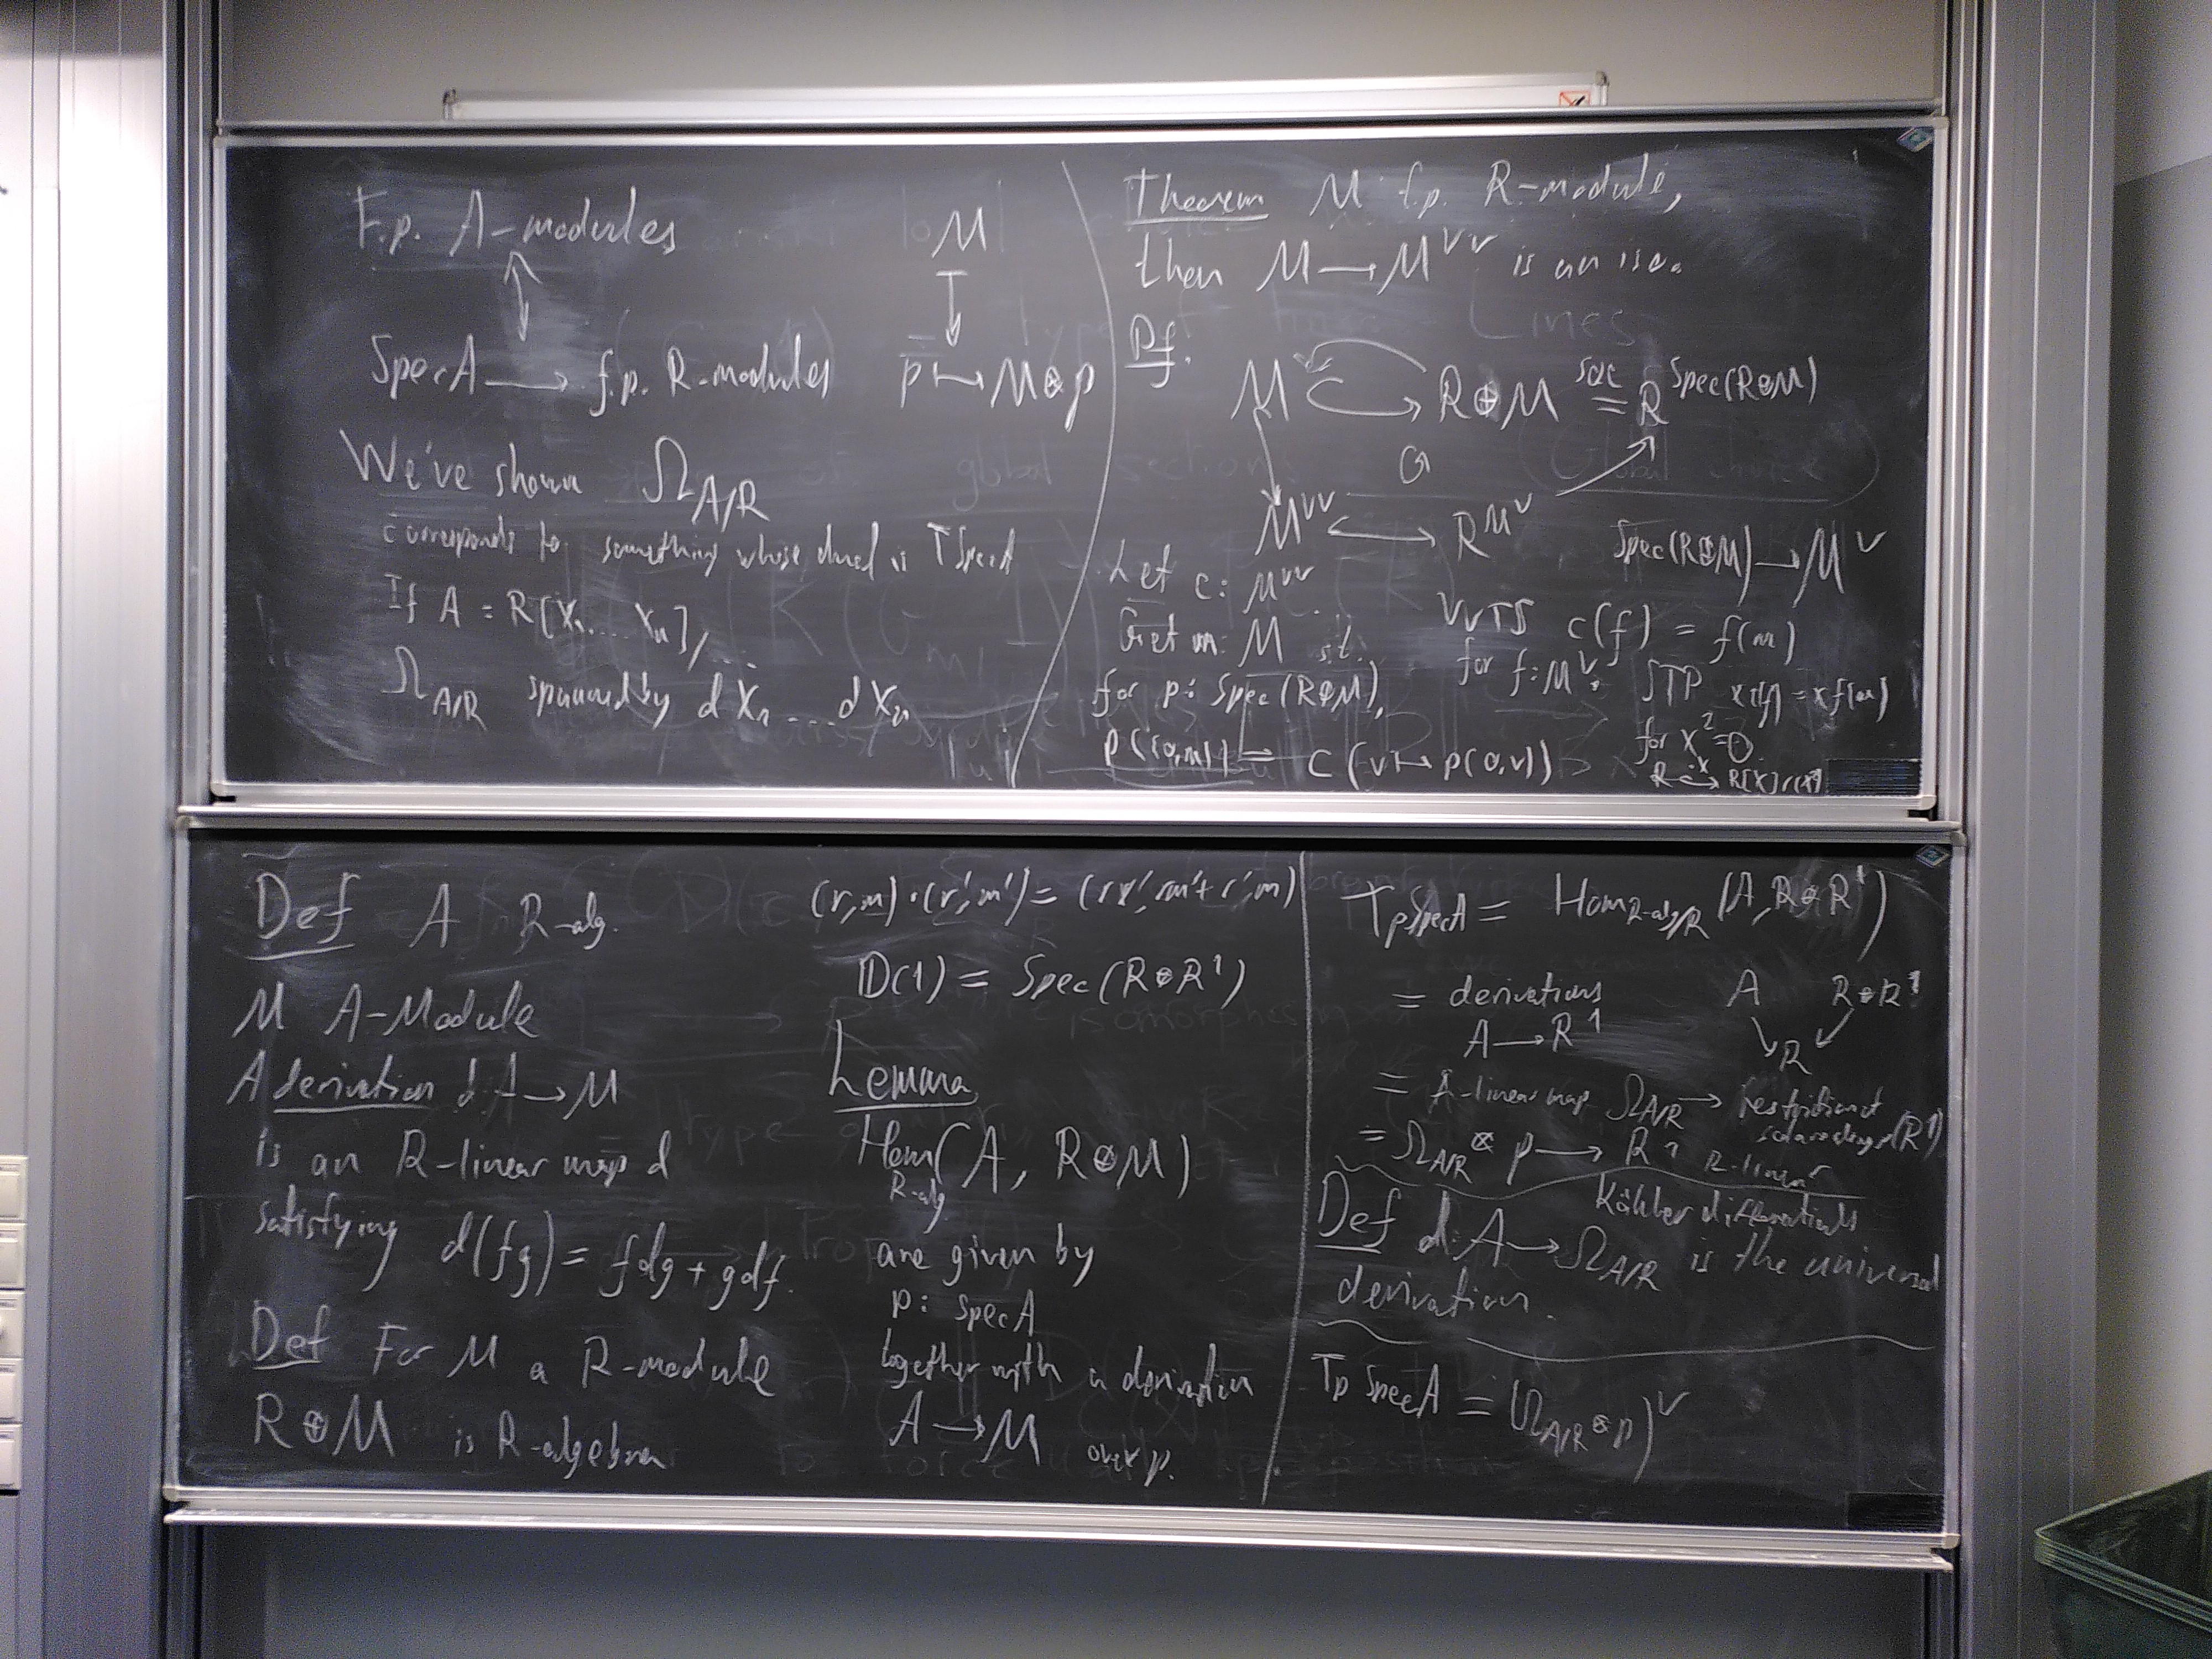 F.p. A-modules
↕
Spec A ⟶ f.p. R-modules
M
↧
p ↦ M⊗p
We've shown Ω_{A/R}
corresponds to something whose dual is T Spec A
If A = R[X₁ ... Xₙ]/...
Ω_{A/R} spanned by dX₁ ... dXₙ
Theorem M f.p. R-module,
then M ⟶ M^{∨∨} is an iso.
Pf.
M ↪ R⊕M =^{SQC} R^{Spec(R⊕M)}
M^{∨∨} ↪ R^{M^∨}
Spec(R⊕M) ⟶ M^∨
Let c: M^{∨∨}
Get m: M s.t.
for p: Spec(R⊕M),
p((0,m)) = c(v ↦ p(0,v))
WTS c(f) = f(m)
for f: M^∨. STP xc(f) = xf(m)
for x² = 0
R ↪^{x} R[X]/(X²)
Def A R-alg.
M A-Module
A derivation d: A → M
is an R-linear map d
satisfying d(fg) = fdg + gdf.
Def For M a R-module
R⊕M is R-algebra
(r,m)·(r',m') = (rr', rm'+r'm)
D(1) = Spec(R⊕R¹)
Lemma
Hom_{R-alg}(A, R⊕M)
are given by
p: Spec A
together with a derivation
A ⟶ M over p.
T_p Spec A = Hom_{R-alg/R}(A, R⊕R¹)
= derivations
A ⟶ R¹
A R⊕R¹
↘ ↙
R
= A-linear map Ω_{A/R} ⟶ restriction of
scalars along p (R¹)
= Ω_{A/R} ⊗ p ⟶ R¹ R-linear
Kähler differentials
Def d: A → Ω_{A/R} is the universal
derivation.
T_p Spec A = (Ω_{A/R} ⊗ p)^∨